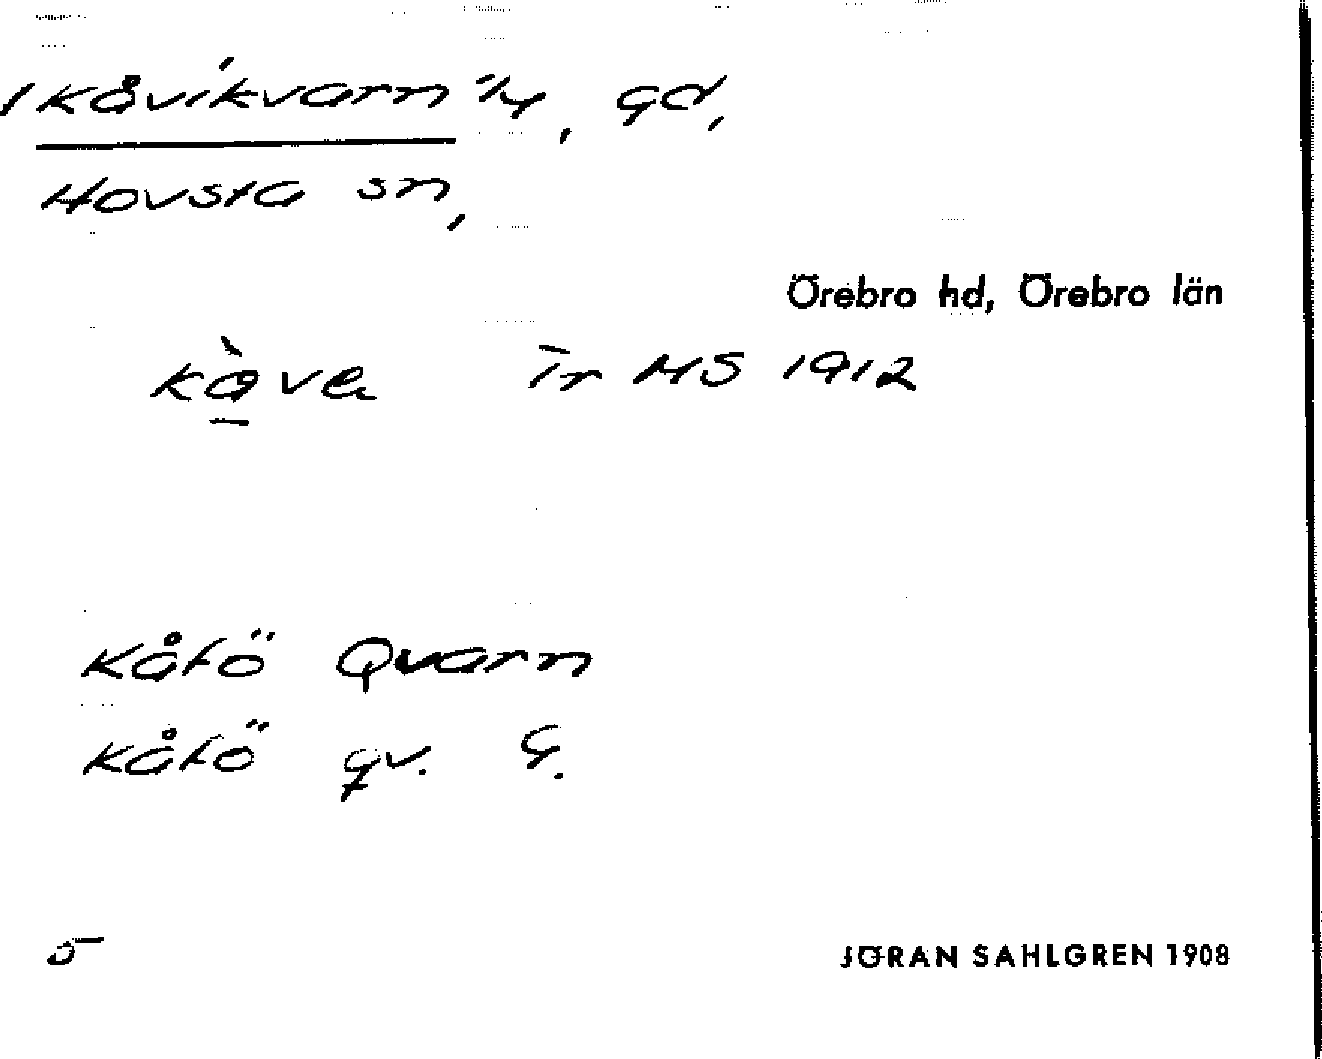 Kåvikvarn 1/4, gd,
Hovsta sn,
Örebro hd, Örebro län
kàve Ir MS 1912
Kåfö Qvarn
Kåfö qv. G.
5
JÖRAN SAHLGREN 1908